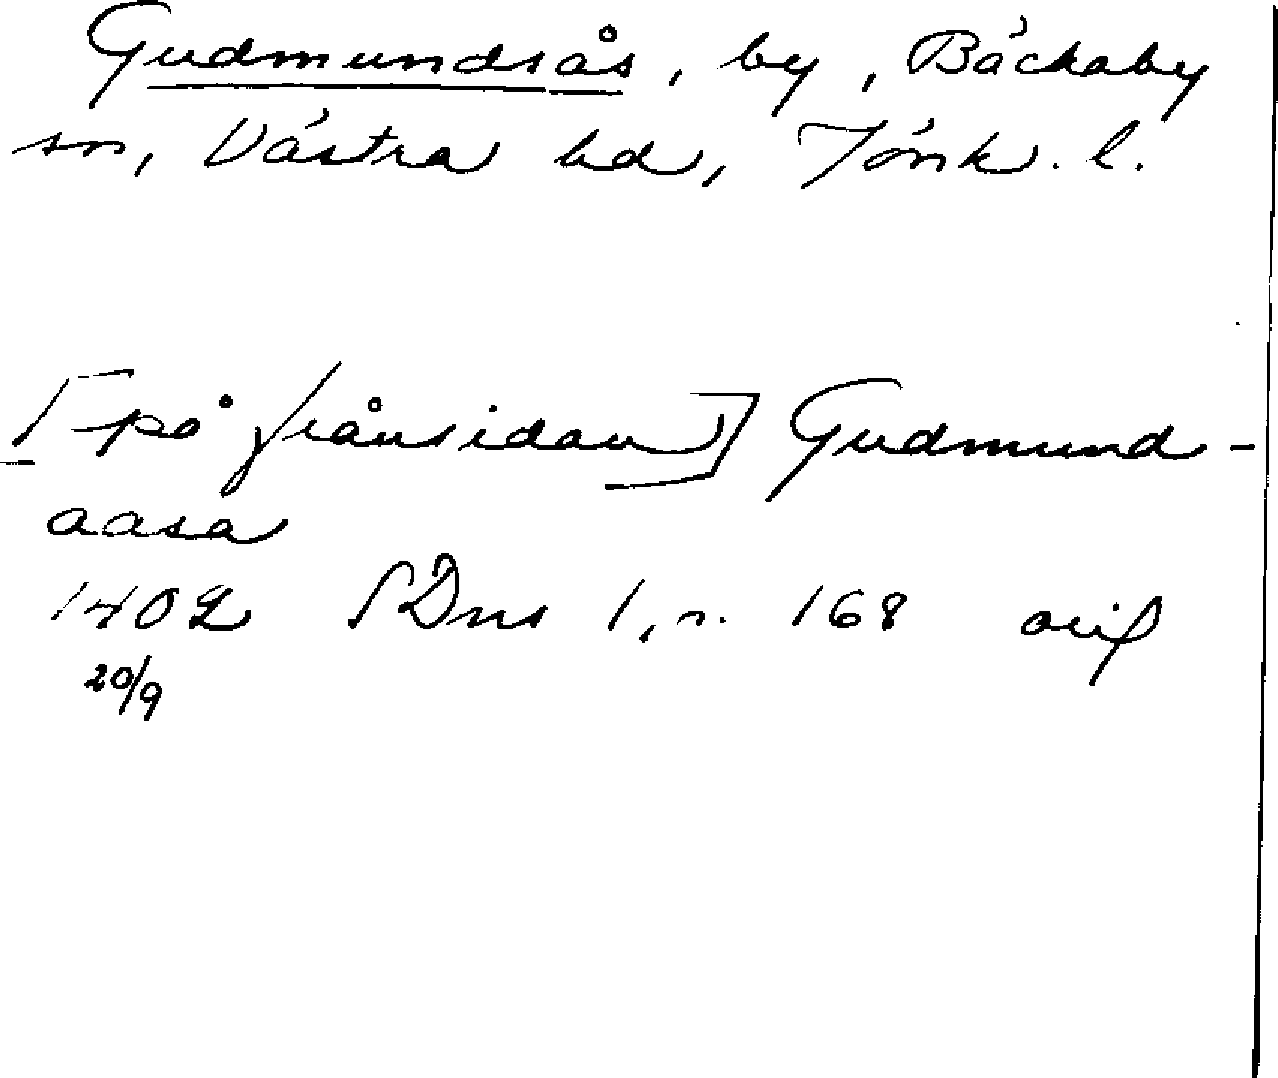 Gudmundsås, by, Bäckaby
sn, Västra hd, Jönk. l.
[på frånsidan] Gudmund-
aasa
1402 SDns 1, s. 168 orig
20/9